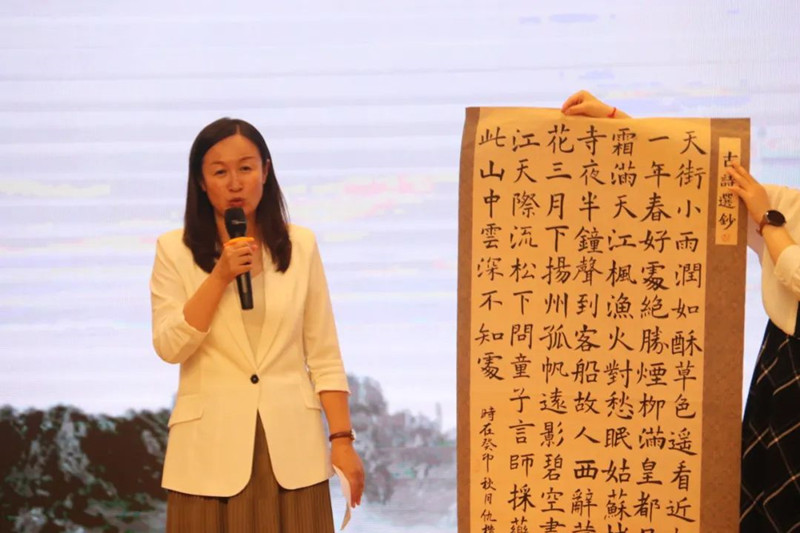 古詩選鈔
天街小雨潤如酥草色遥看近
一年春好處絕勝煙柳滿皇都月
霜滿天江楓漁火對愁眠姑蘇城
寺夜半鐘聲到客船故人西辭黃
花三月下揚州孤帆遠影碧空盡
江天際流松下問童子言師採藥
此山中雲深不知處
時在癸卯秋月仇